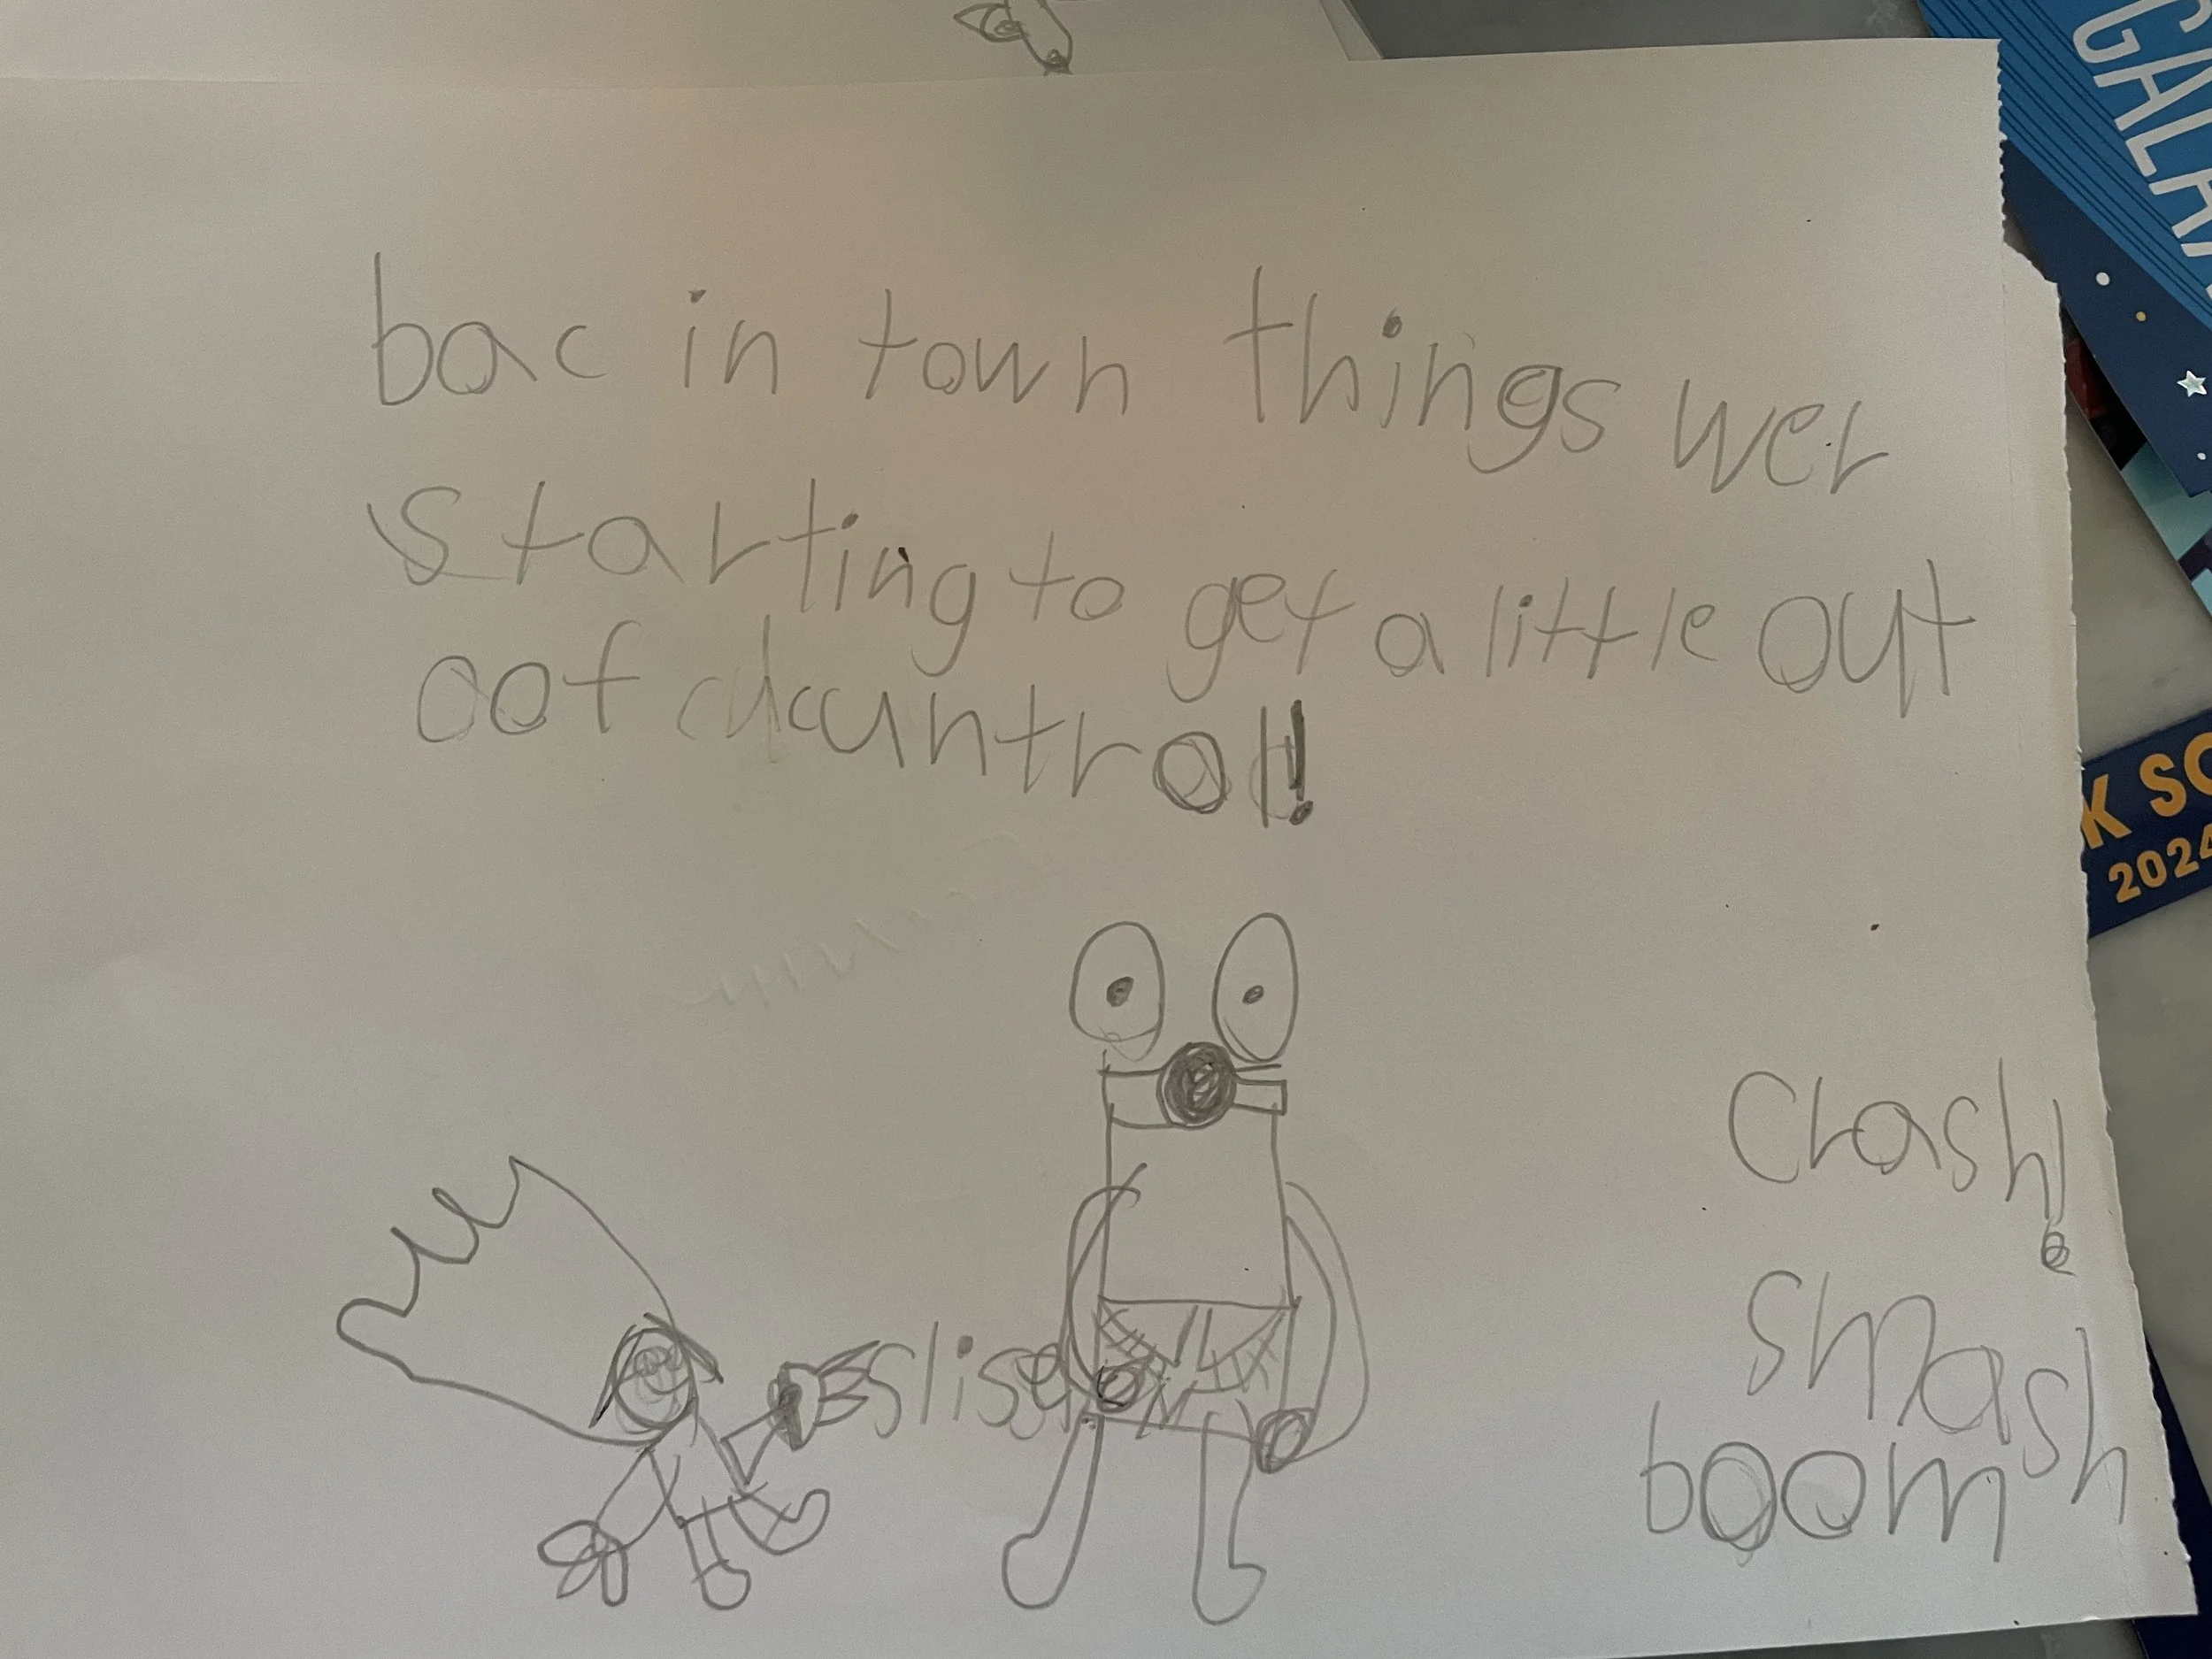 bac in town things wer
starting to get a little out
oof cuntrol!
slise
crash!
smash
boom
GALA
K SC
2024